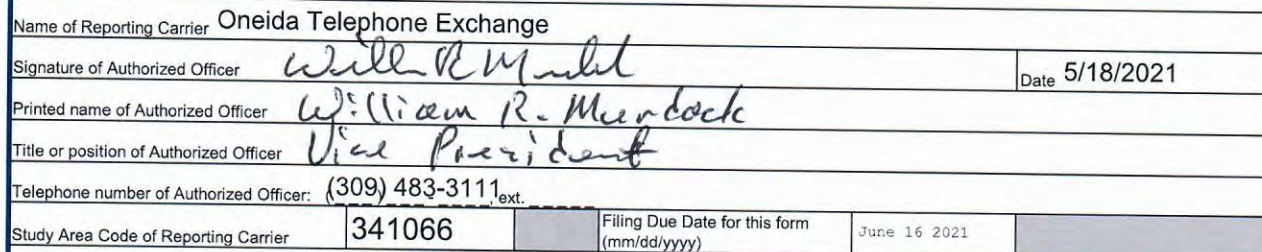 Name of Reporting Carrier Oneida Telephone Exchange
Signature of Authorized Officer Date 5/18/2021
Printed name of Authorized Officer William R. Murdock
Title or position of Authorized Officer Vice President
Telephone number of Authorized Officer: (309) 483-3111 ext.
Study Area Code of Reporting Carrier 341066 Filing Due Date for this form (mm/dd/yyyy) June 16 2021